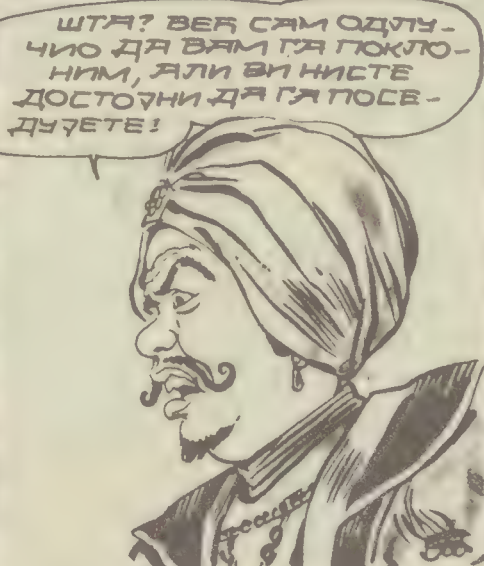 ШТА? ВЕЋ САМ ОДЛУ-
ЧИО ДА ВАМ ГА ПОКЛО-
НИМ, АЛИ ВИ НИСТЕ
ДОСТОЈНИ ДА ГА ПОСЕ-
ДУЈЕТЕ!